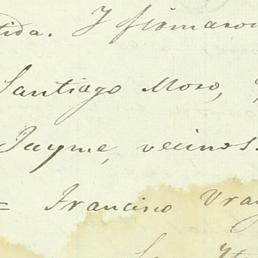 tida. Y firmaron
Santiago Moso,
Jayme, vecinos.
= Francisco Vra